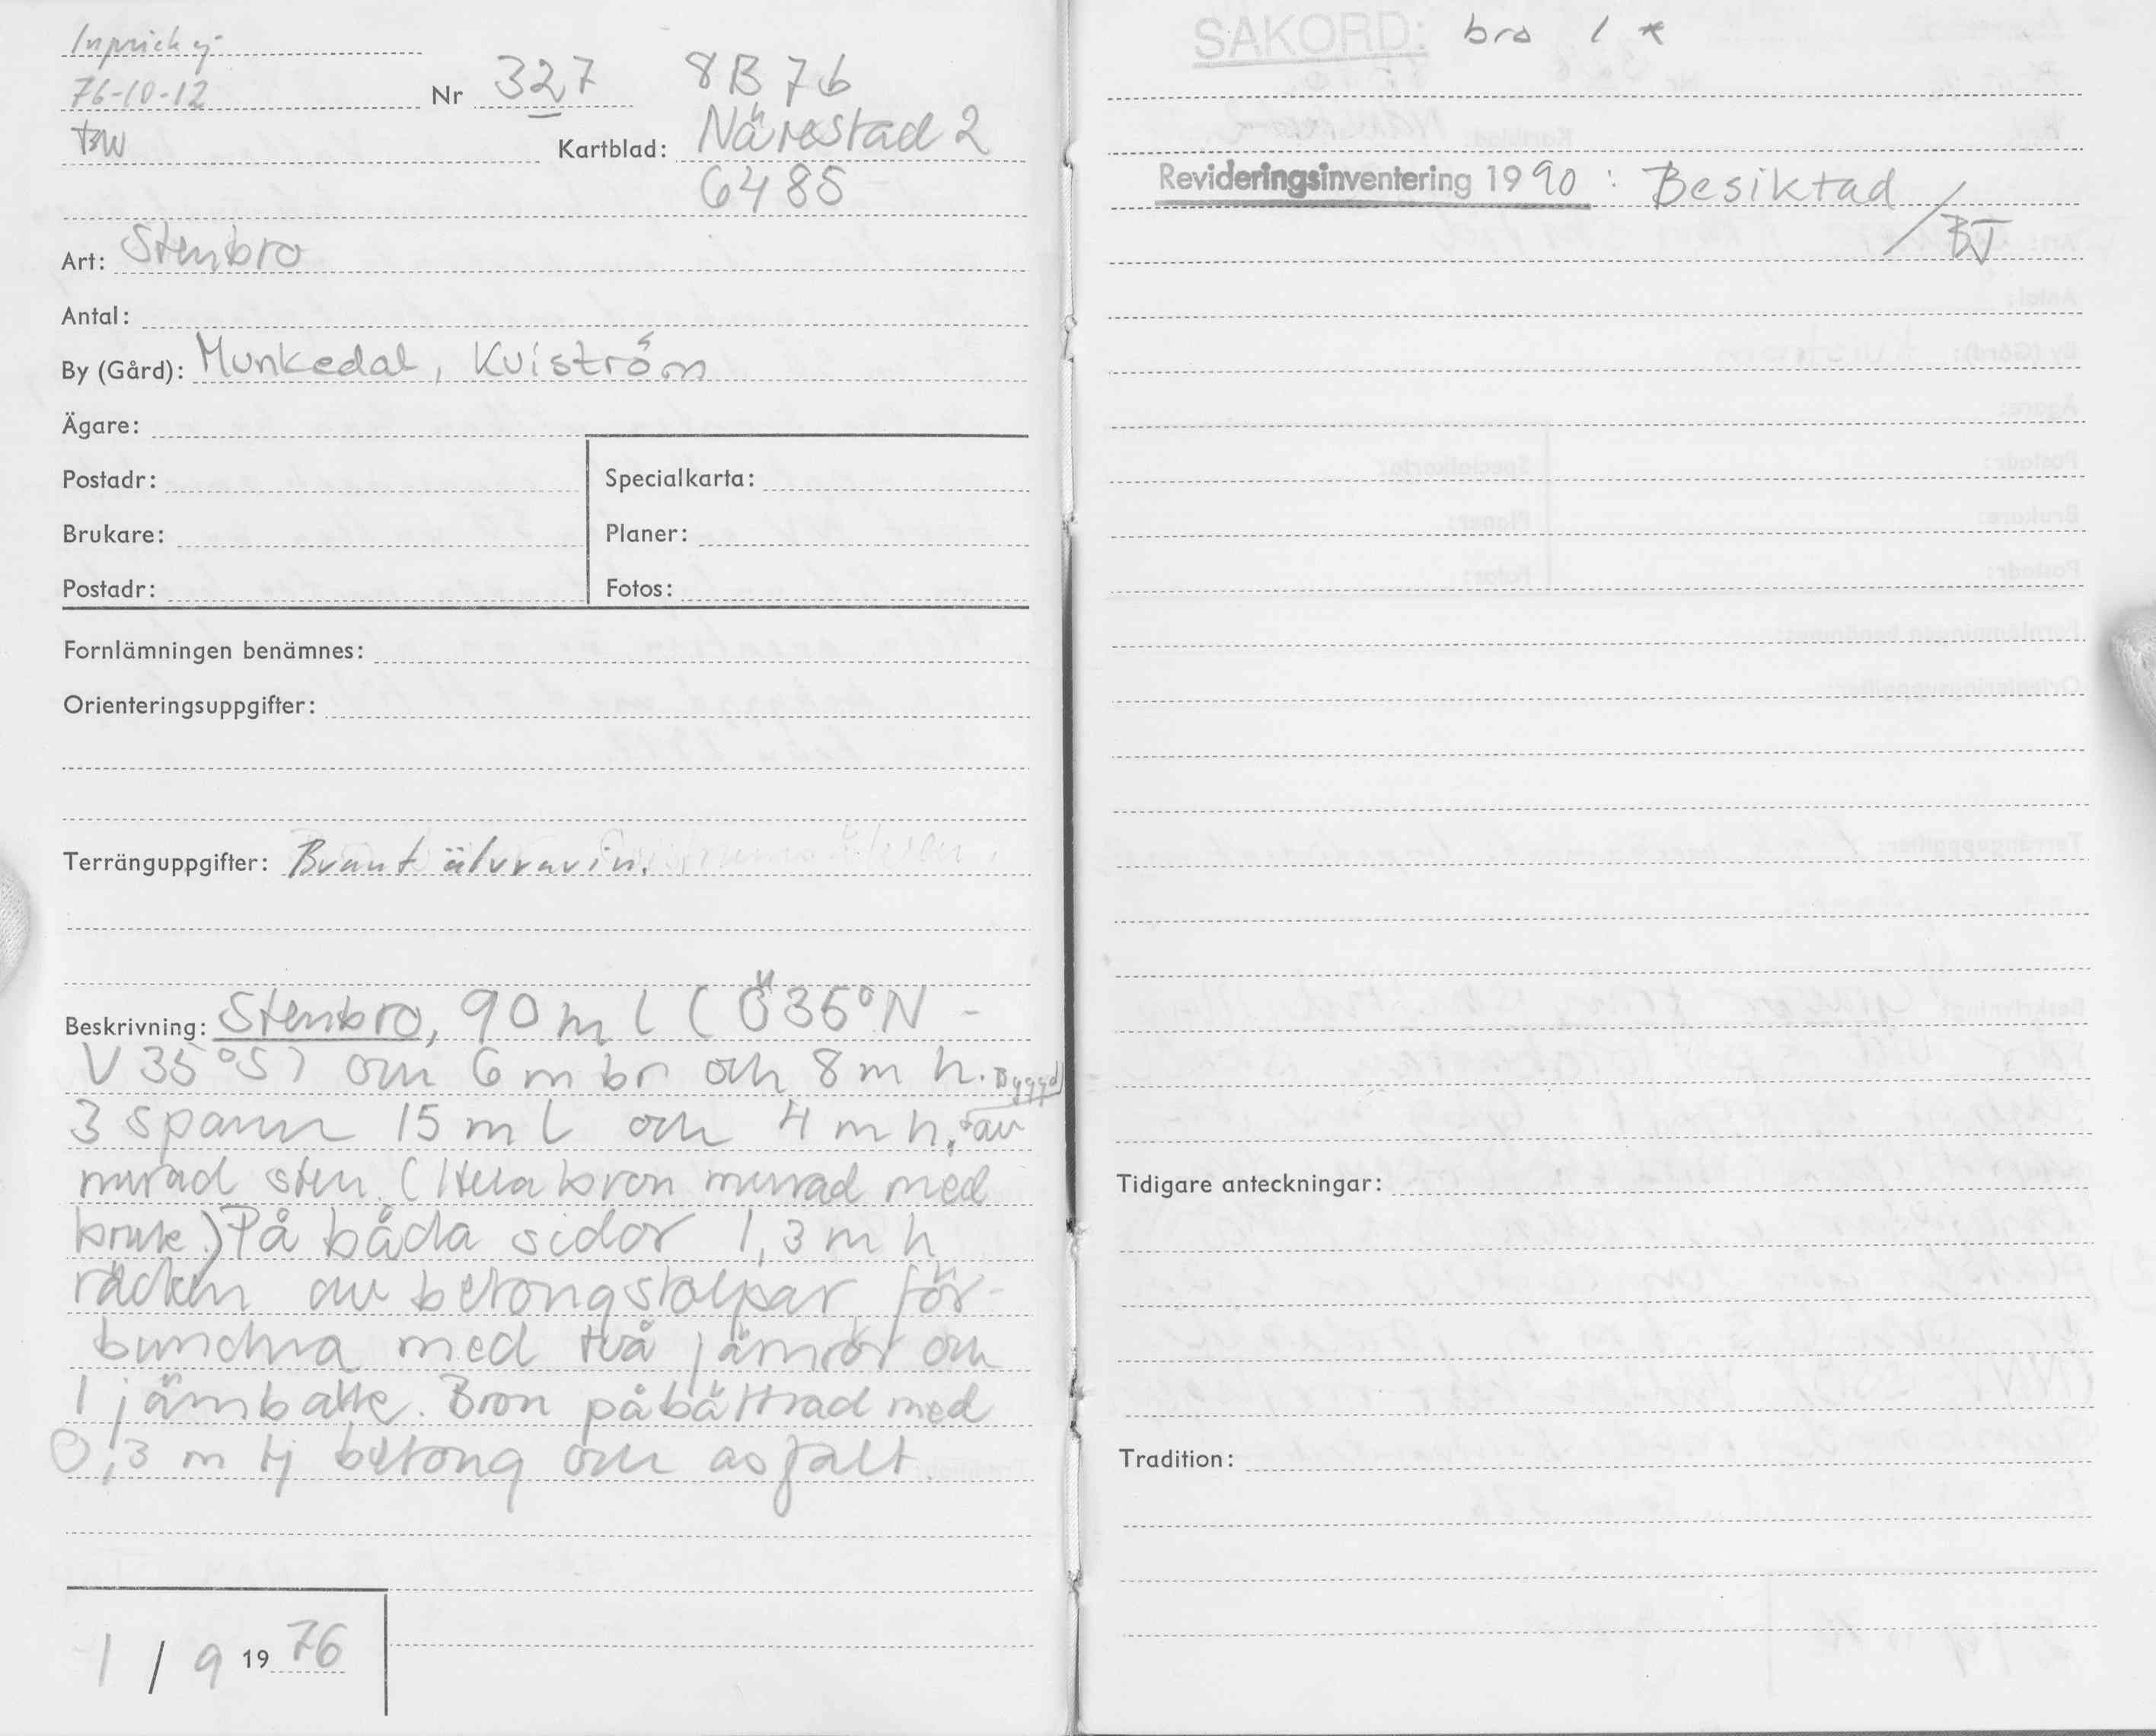 Inprick ej
76-10-12
Nr 327 8B 7b
Kartblad: Närestad 2
6485
Art: Stenbro
Antal:
By (Gård): Munkedal, Kviström
Ägare:
Postadr:
Specialkarta:
Brukare:
Planer:
Postadr:
Fotos:
Fornlämningen benämnes:
Orienteringsuppgifter:
Terränguppgifter: Brant älvravin.
Beskrivning: Stenbro, 90 m l (Ö35°N -
V35°S) och 6 m br och 8 m h. Byggd
3 spann 15 m l och 4 m h, av
murad sten. (Hela bron murad med
bruk.) På båda sidor 1,3 m h
räcken av betongstolpar för-
bundna med två järnrör och
1 järnbalk. Bron påbättrad med
0,3 m tj betong och asfalt
1 / 9 1976
SAKORD: bro 1 *
Revideringsinventering 1990: Besiktad
/BJ
Tidigare anteckningar:
Tradition: